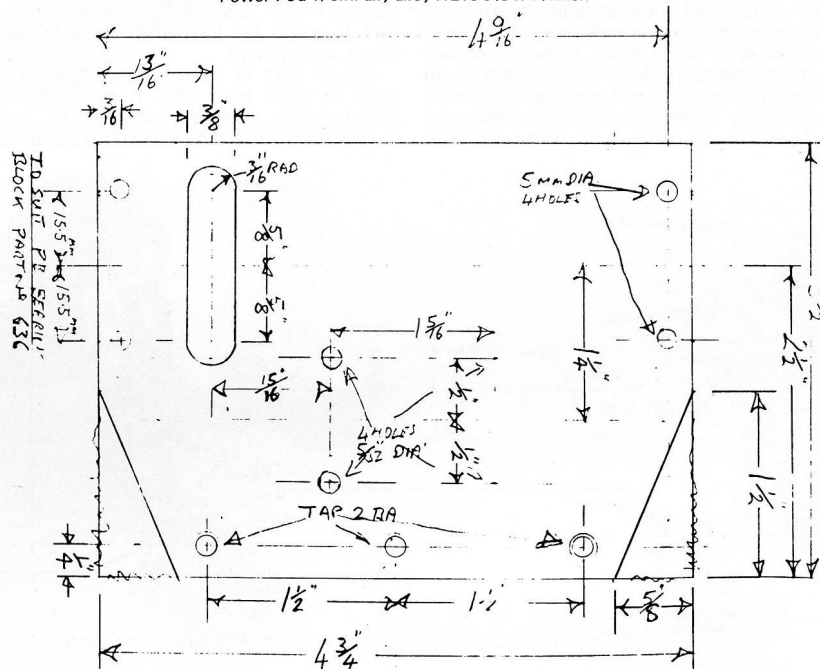 4 9/16
13/16"
3/16
3/8"
3/16" RAD
5 MM DIA
4 HOLES
TO SUIT
BLOCK PART Nº 636
15.5 mm
15.5 mm
5/8"
5/8"
1 5/16"
15/16"
1/2"
1/2"
1 1/4"
2 1/2"
1 1/2"
4 HOLES
5/32" DIA
TAP 2 BA
1/4"
1 1/2"
1 1/2"
5/8
4 3/4"